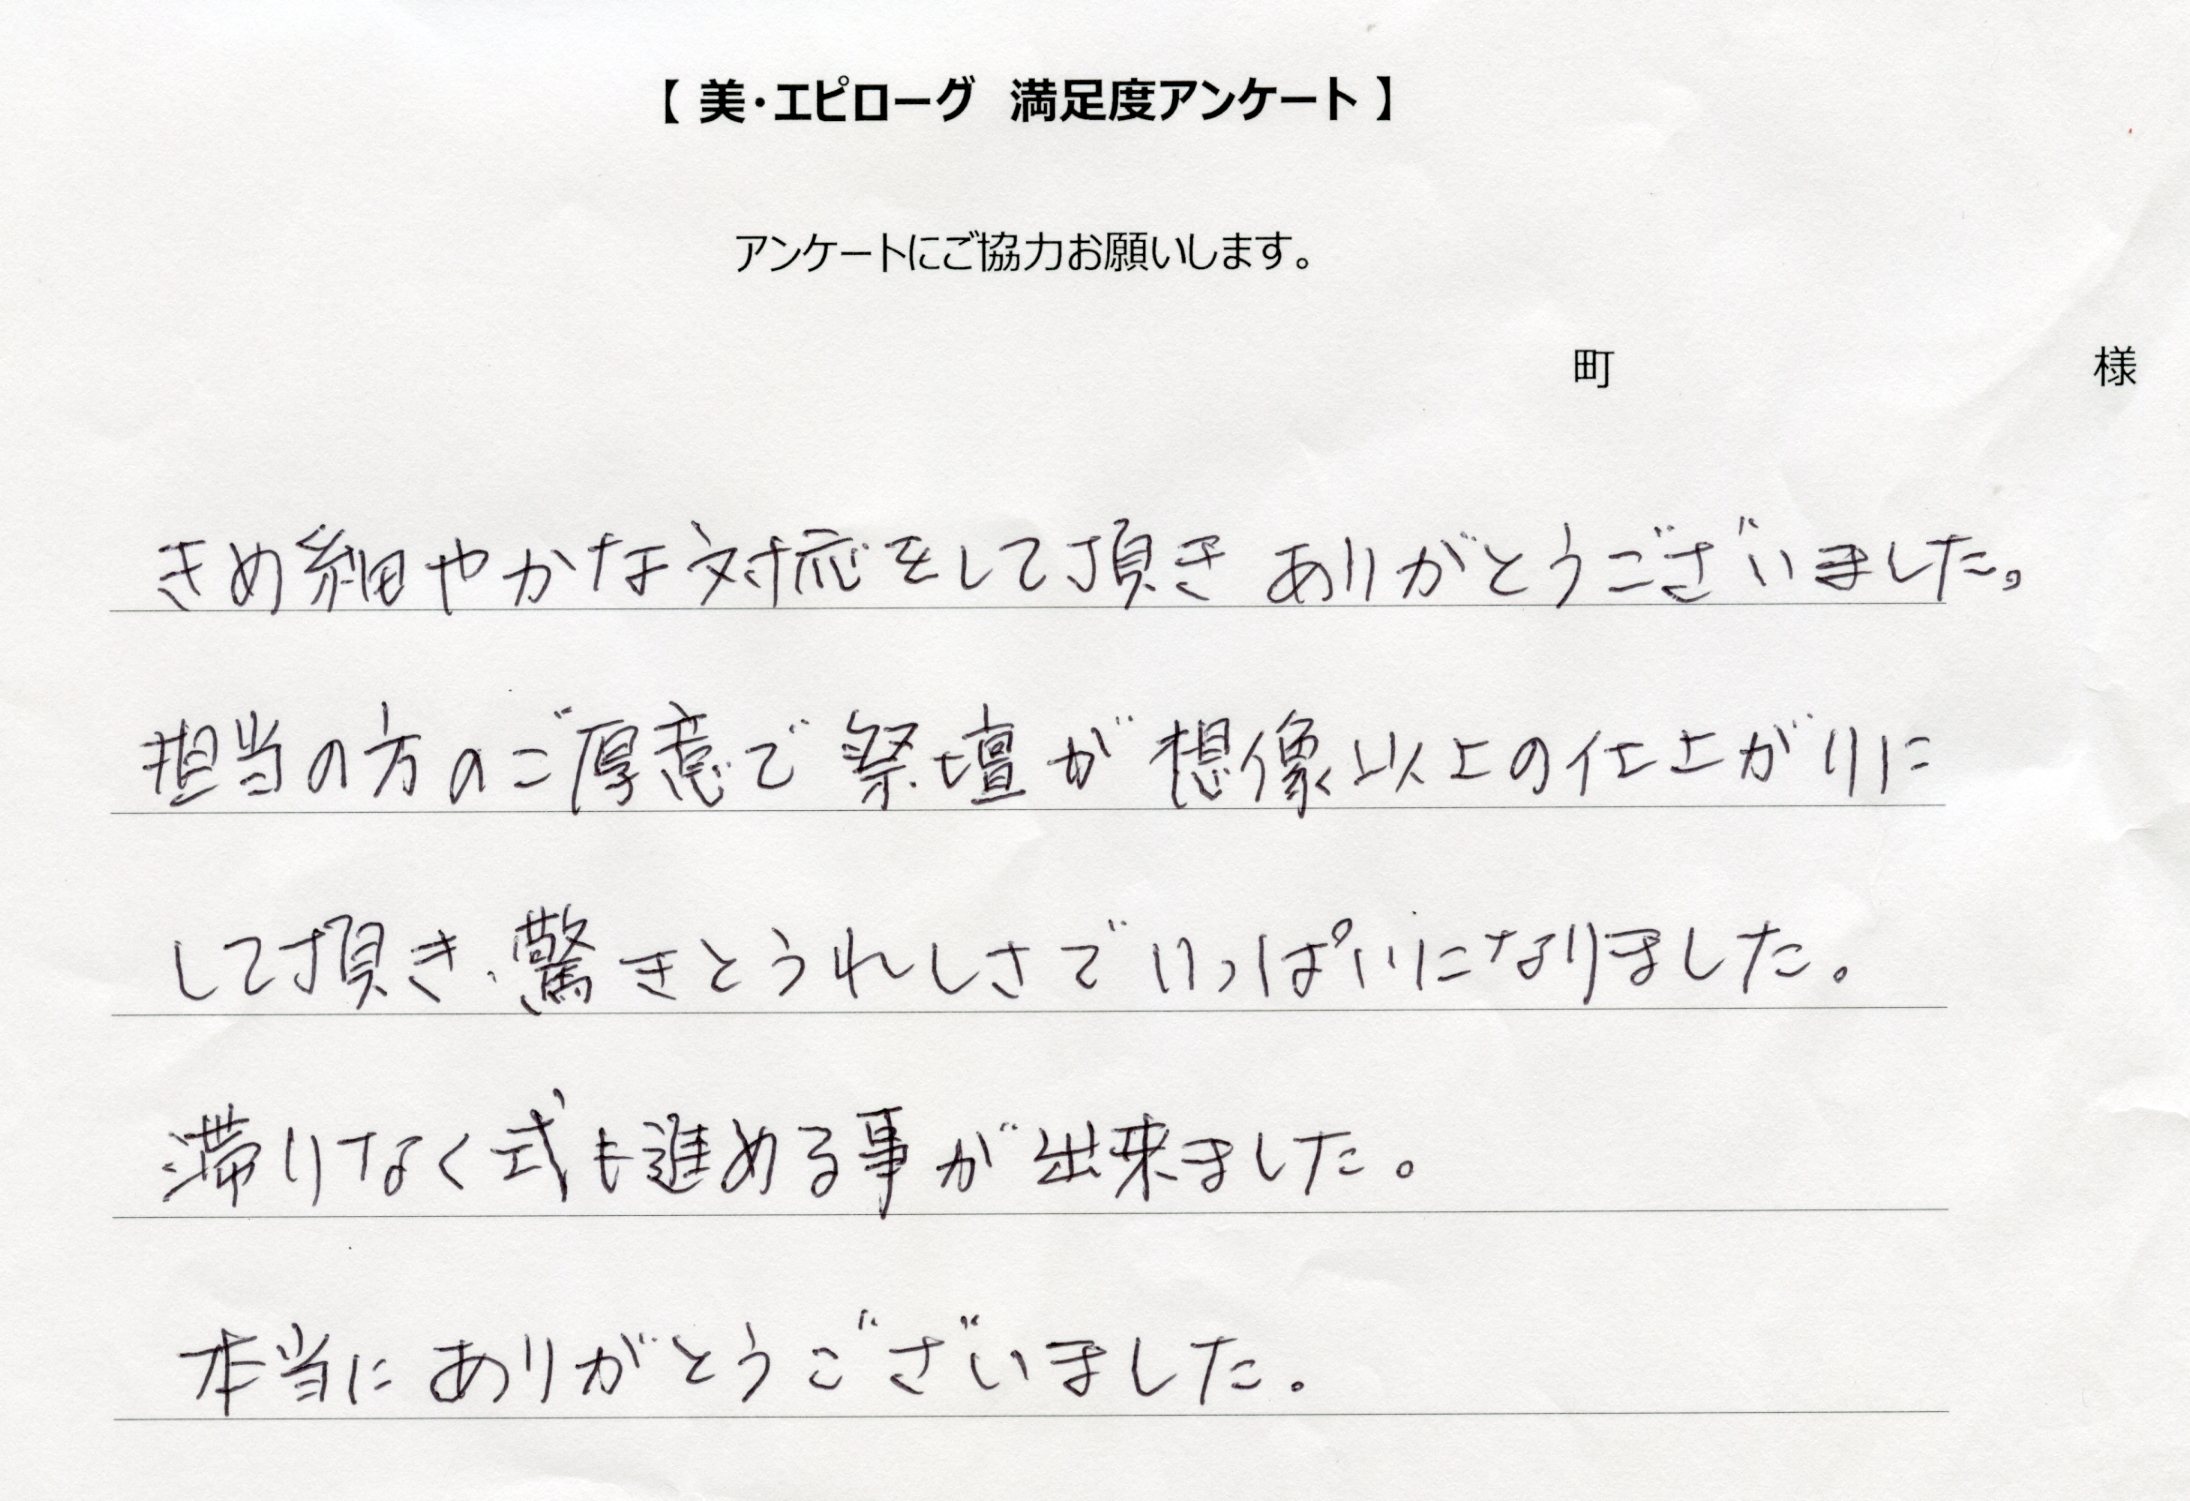 【 美・エピローグ　満足度アンケート 】
アンケートにご協力お願いします。
町　様
きめ細やかな対応をして頂き ありがとうございました。
担当の方のご厚意で 祭壇が 想像以上の仕上がりに
して頂き、驚きとうれしさでいっぱいになりました。
滞りなく式も進める事が出来ました。
本当に ありがとうございました。